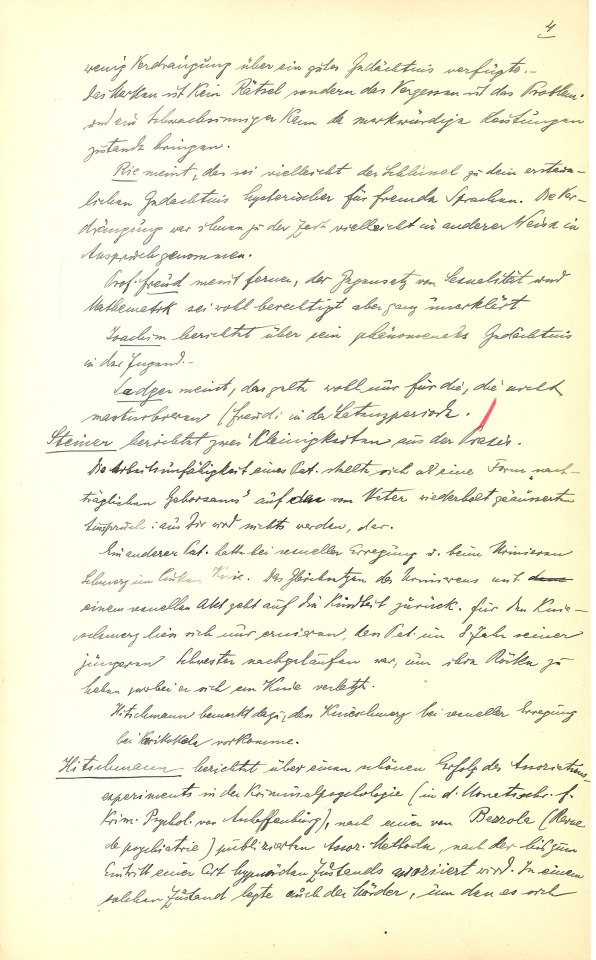 4
wenig Verdrängung über ein gutes Gedächtnis verfügte.-
Das Merken ist kein Rätsel sondern das Vergessen ist das Problem.
und ein Schwachsinniger kann da merkwürdige Leistungen
zustande bringen.
Rie meint, das sei vielleicht der Schlüssel zu dem erstaun-
lichen Gedächtnis hysterischer für fremde Sprachen. Die Ver-
drängung war ihnen zu der Zeit vielleicht in anderer Weise in
Anspruch genommen.
Prof. Freud meint ferner, der Gegensatz von Sexualität und
Mathematik sei wohl berechtigt aber ganz unerklärt
Joachim berichtet über sein phänomenales Gedächtnis
in der Jugend.-
Sadger meint, das gelte wohl nur für die, die nicht
masturbieren (Freud: in der Latenzperiode.
Steiner berichtet zwei Kleinigkeiten aus der Praxis.
Die Arbeitsunfähigkeit eines Pat. stellte sich als eine Form „nach-
träglichen Gehorsams" auf den vom Vater wiederholt geäusserten
Ausspruch: aus Dir wird nichts werden, dar.
Ein anderer Pat. hatte bei sexueller Erregung u. beim Urinieren
Schmerz im linken Knie. Das Gleichsetzen des Urinierens mit
einem sexuellen Akt geht auf die Kindheit zurück. Für den Knie-
schmerz liess sich nur eruieren, dass Pat. im 8. Jahr seiner
jüngeren Schwester nachgelaufen war, um ihre Röcke zu
heben, wobei er sich ein Knie verletzte.
Hitschmann bemerkt dazu, dass Knieschmerz bei sexueller Erregung
bei Varikokele vorkomme.
Hitschmann berichtet über einen schönen Erfolg des Assoziations-
experiments in der Kriminalpsychologie (in d. Monatsschr. f.
Krim. Psychol. von Aschaffenburg), nach einer von Bezzola (Revue
de psychiatrie) publizierten Assoz. Methode, nach der bis zum
Eintritt einer Art hypnoiden Zustands assoziiert wird. In einem
solchen Zustand legte auch der Mörder, um den es sich